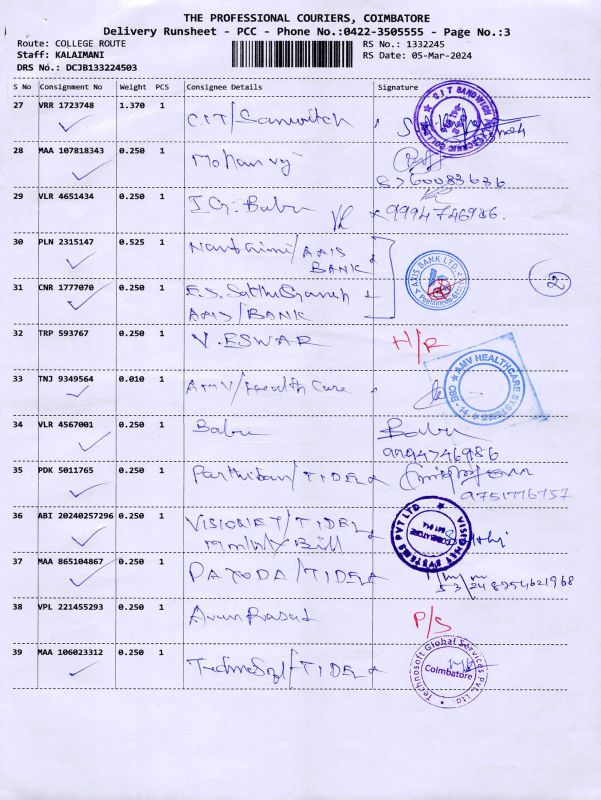 THE PROFESSIONAL COURIERS, COIMBATORE
Delivery Runsheet - PCC - Phone No.:0422-3505555 - Page No.:3
Route: COLLEGE ROUTE
RS No.: 1332245
Staff: KALAIMANI
RS Date: 05-Mar-2024
DRS No.: DCJB133224503
S No Consignment No Weight PCS Consignee Details Signature
27 VRR 1723748 1.370 1 CIT/Sanwitch
28 MAA 107818343 0.250 1 Mohan
8760083636
29 VLR 4651434 0.250 1 Babu 9994746986.
30 PLN 2315147 0.525 1 AXIS BANK
AXIS BANK LTD.
2
31 CNR 1777070 0.250 1 E.S.
AXIS/BANK
32 TRP 593767 0.250 1 V.ESWAR H/R
33 TNJ 9349564 0.010 1 AMV/Health Care
AMV HEALTHCARE SYSTEMS
34 VLR 4567001 0.250 1 Babu Babu
9994746986
35 PDK 5011765 0.250 1 Parthiban/TIDEL
9751776757
36 ABI 20240257296 0.250 1 VISIONET/TIDEL
Bill
VISIONET SYSTEMS PVT LTD
COIMBATORE
641 014
37 MAA 865104867 0.250 1 PAYODA/TIDEL
5/3/24 8754621968
38 VPL 221455293 0.250 1 Arun Prasad P/S
39 MAA 106023312 0.250 1 TIDEL
Technosoft Global Services Pvt. Ltd.
Coimbatore